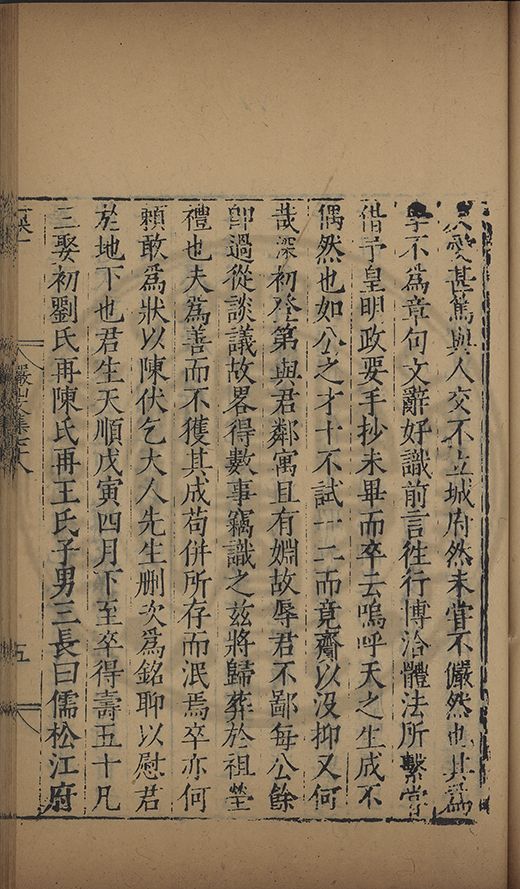 愛甚篤與人交不立城府然未嘗不儼然也其為
學不為章句文辭好識前言徃行博洽體法所繫嘗
借予皇明政要手抄未畢而卒云嗚呼天之生成不
偶然也如公之才十不試一二而竟齎以沒抑又何
哉深初登第與君鄰寓且有婣故辱君不鄙每公餘
卽過從談議故畧得數事竊識之兹將歸葬於祖塋
禮也夫為善而不獲其成苟併所存而泯焉卒亦何
頼敢為狀以陳伏乞大人先生刪次為銘聊以慰君
於地下也君生天順戊寅四月下至卒得壽五十凡
三娶初劉氏再陳氏再王氏子男三長曰儒松江府
五